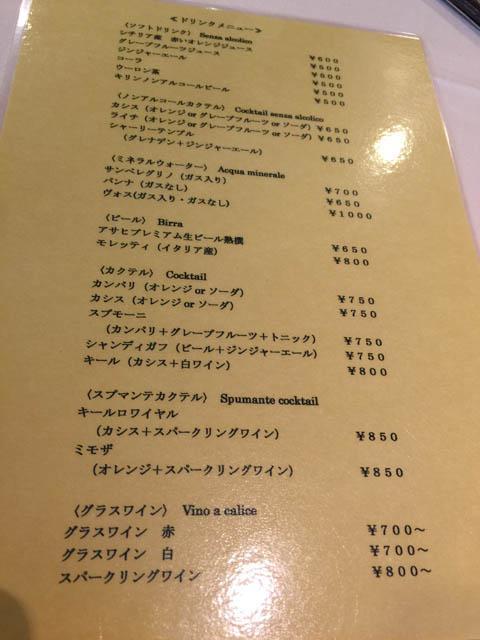 ≪ドリンクメニュー≫
〈ソフトドリンク〉 Senza alcolico
シチリア産 赤いオレンジジュース ¥600
グレープフルーツジュース ¥500
ジンジャーエール ¥500
コーラ ¥500
ウーロン茶 ¥500
キリンノンアルコールビール ¥500
〈ノンアルコールカクテル〉 Cocktail senza alcolico
カシス（オレンジ or グレープフルーツ or ソーダ）¥650
ライチ（オレンジ or グレープフルーツ or ソーダ）¥650
シャーリーテンプル
（グレナデン＋ジンジャーエール） ¥650
〈ミネラルウォーター〉 Acqua minerale
サンペレグリノ（ガス入り） ¥700
パンナ（ガスなし） ¥650
ヴォス(ガス入り・ガスなし） ¥1000
〈ビール〉 Birra
アサヒプレミアム生ビール熟撰 ¥650
モレッティ（イタリア産） ¥800
〈カクテル〉 Cocktail
カンパリ（オレンジ or ソーダ） ¥750
カシス（オレンジ or ソーダ） ¥750
スプモーニ
（カンパリ＋グレープフルーツ＋トニック） ¥750
シャンディガフ（ビール＋ジンジャーエール） ¥750
キール（カシス＋白ワイン） ¥800
〈スプマンテカクテル〉 Spumante cocktail
キールロワイヤル
（カシス＋スパークリングワイン） ¥850
ミモザ
（オレンジ＋スパークリングワイン） ¥850
〈グラスワイン〉 Vino a calice
グラスワイン 赤 ¥700～
グラスワイン 白 ¥700～
スパークリングワイン ¥800～